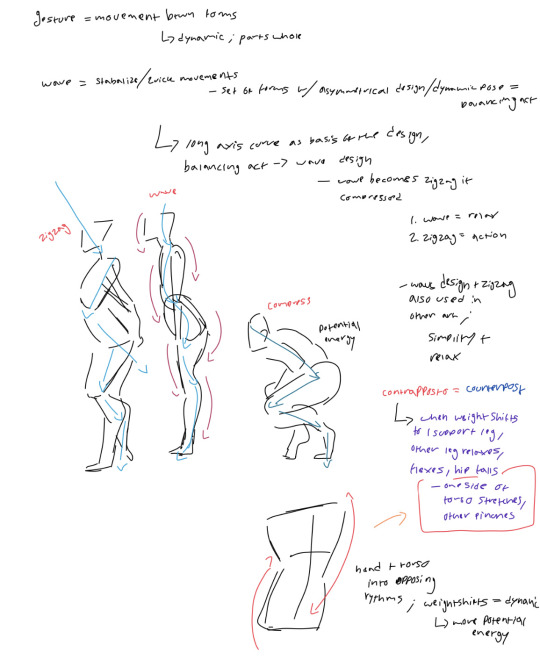 gesture = movement btwn forms
↳ dynamic ; parts whole
wave = stabalize/quick movements
- set of forms w/ asymmetrical design/dynamic pose =
balancing act
↳ long axis curve as basis of the design,
balancing act → wave design
- wave becomes zigzag if
compressed
1. wave = relax
2. zigzag = action
zigzag
wave
compress
potential
energy
- wave design + zigzag
also used in
other art ;
simplify +
relax
contrapposto = counterpost
↳ when weight shifts
to 1 support leg,
other leg relaxes,
flexes, hip falls
- one side of
torso stretches,
other pinches
head + torso
into opposing
rythms ; weightshifts = dynamic
↳ more potential
energy